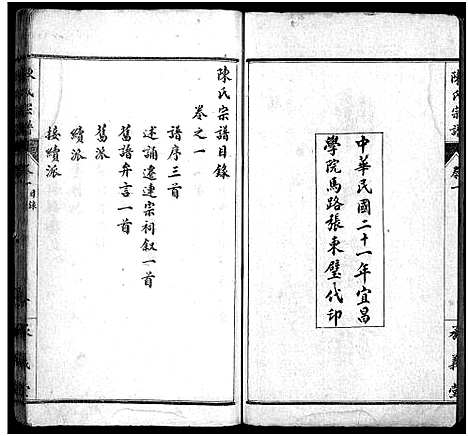 陳氏宗譜
卷一
義堂
中華民國二十一年宜昌
學院馬路張東璧代印
陳氏宗譜目錄
卷之一
譜序三首
述誦遷連宗祠叙一首
舊譜弁言一首
舊派
續派
接續派
陳氏宗譜
卷一目錄